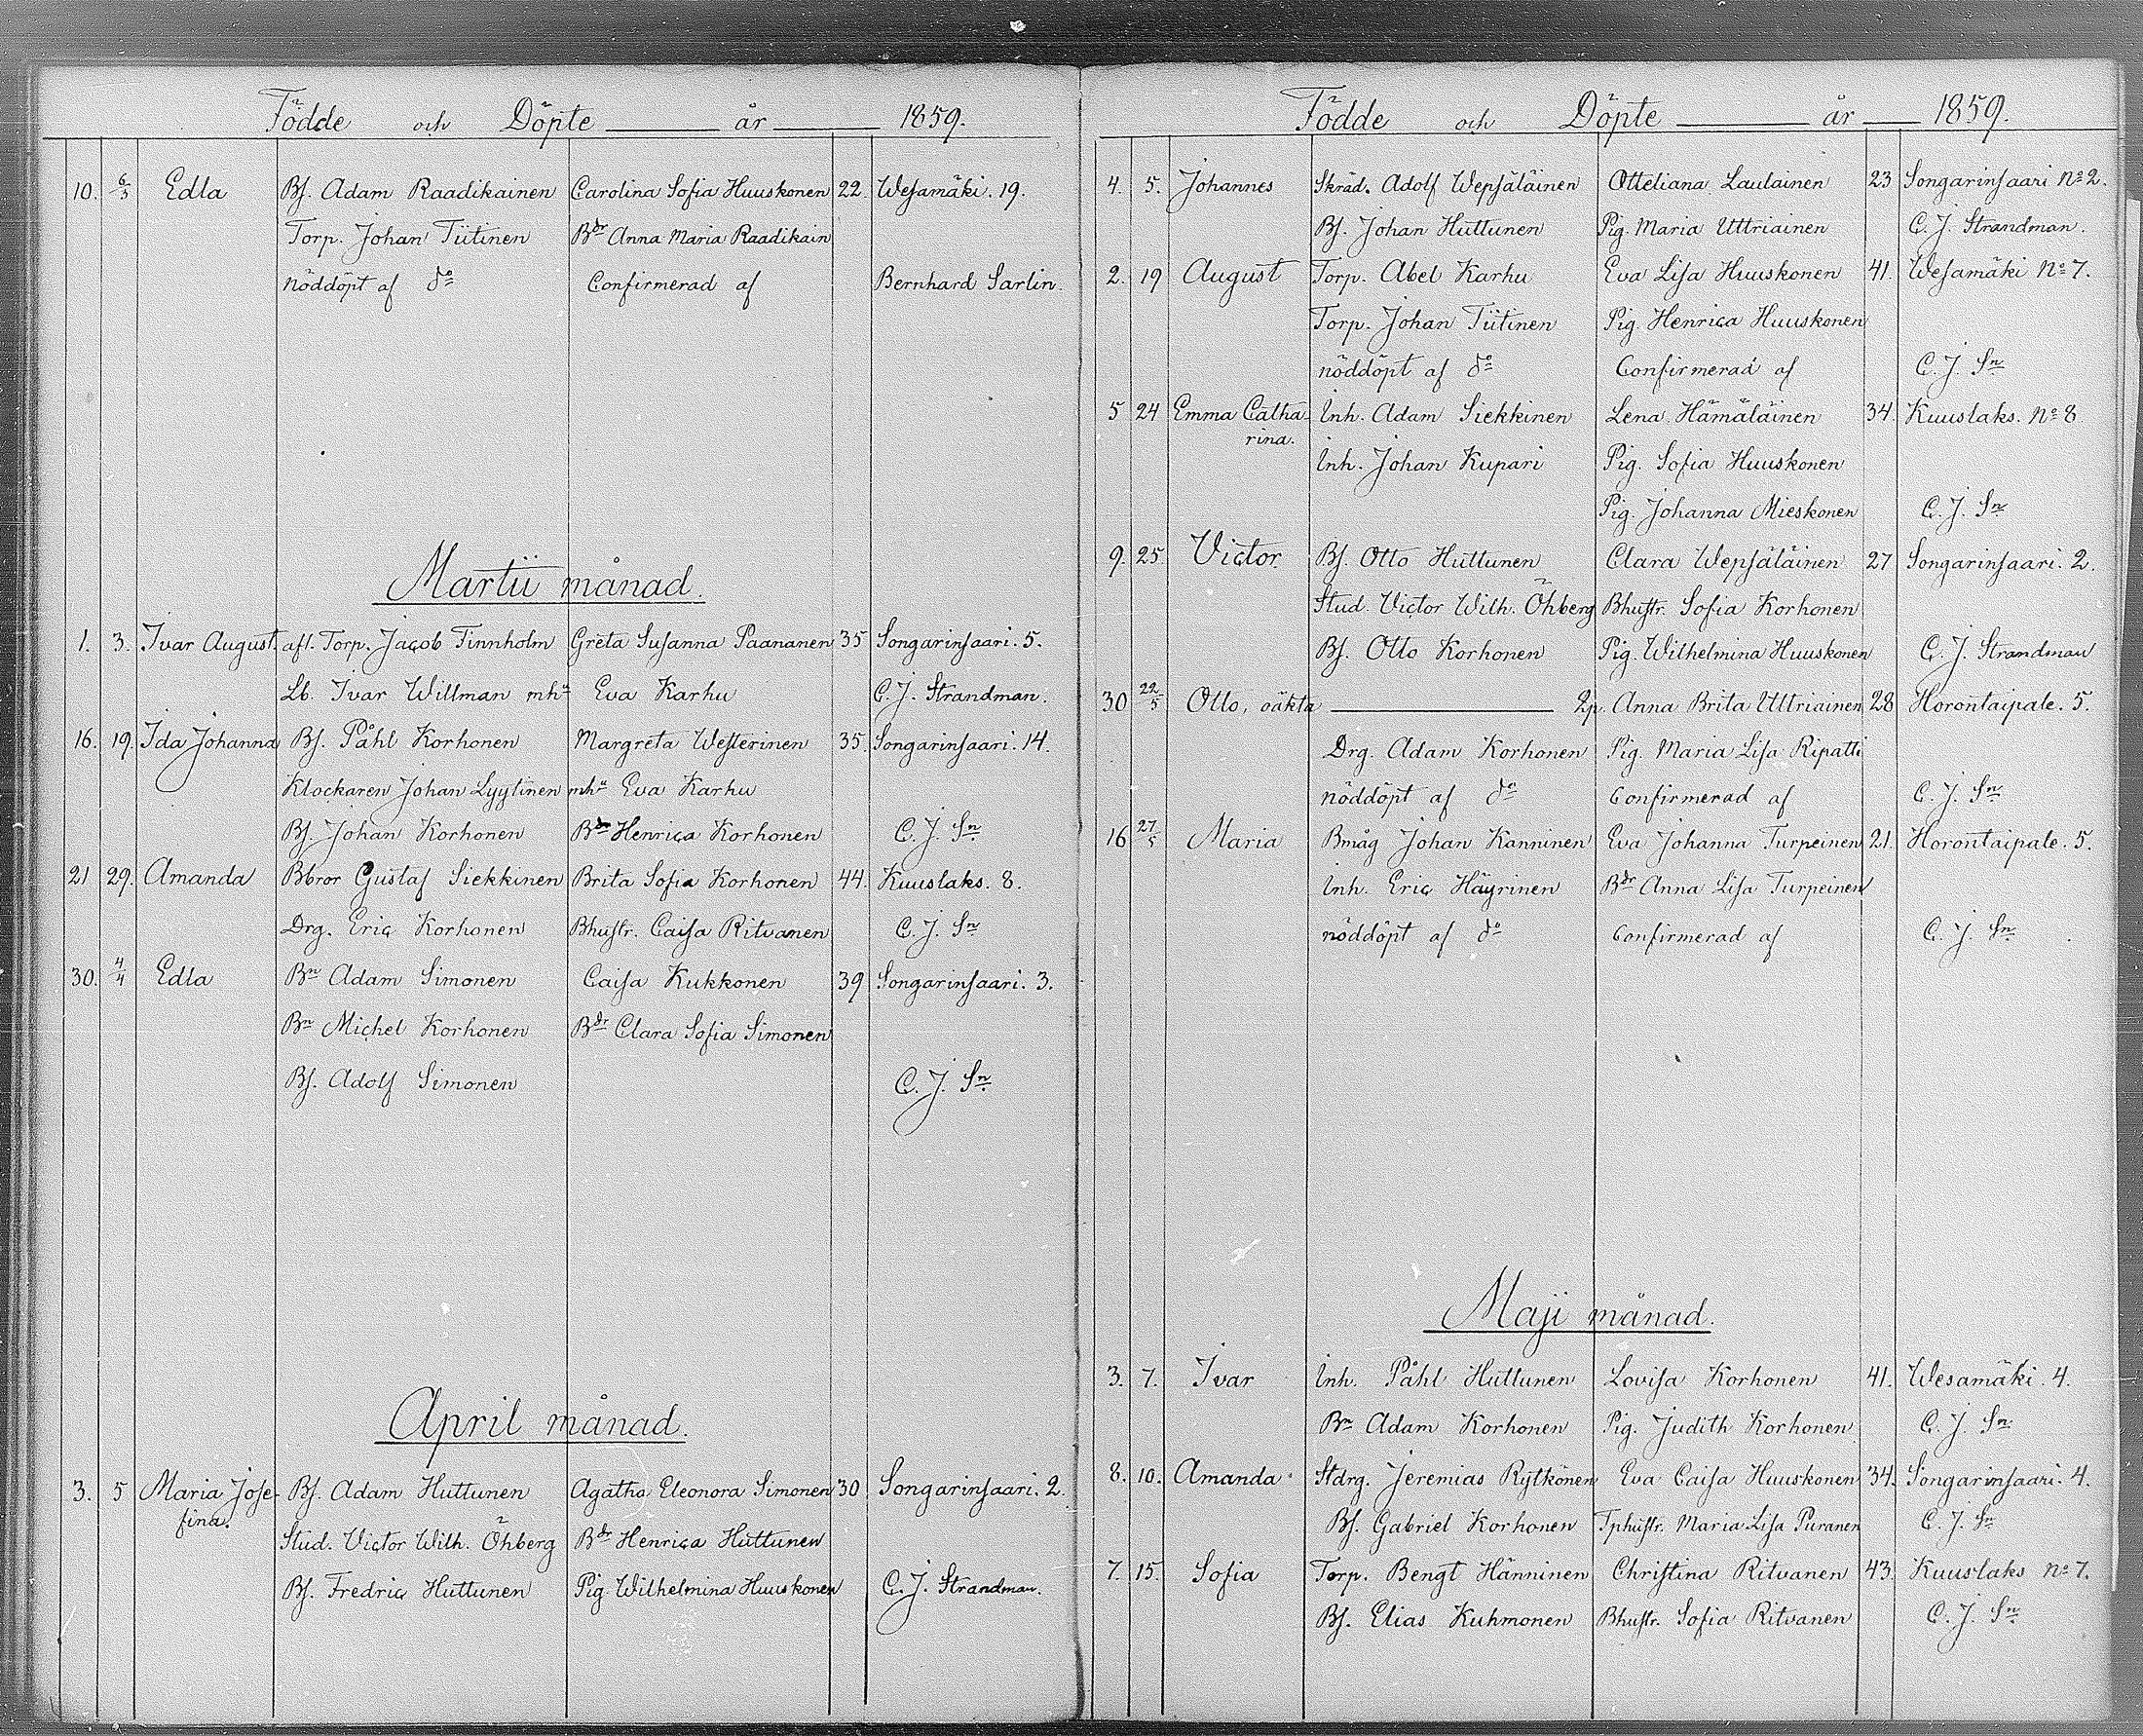 Födde och Döpte år 1859.
10. 6/3 Edla Bs. Adam Raadikainen Carolina Sofia Huuskonen 22. Wesamäki. 19.
Torp. Johan Tiitinen Bdr Anna Maria Raadikain
nöddöpt af do Confirmerad af Bernhard Sarlin.
Martii månad.
1. 3. Ivar August. afl. Torp. Jacob Finnholm Greta Susanna Paananen 35 Songarinsaari. 5.
Lb. Ivar Willman mha Eva Karhu C. J. Strandman.
16. 19. Ida Johanna Bs. Påhl Korhonen Margreta Westerinen 35. Songarinsaari. 14.
Klockaren Johan Lyytinen mha Eva Karhu
Bs. Johan Korhonen Bdr Henrica Korhonen C. J. Sn
21 29. Amanda Bbror Gustaf Siekkinen Brita Sofia Korhonen 44. Kuuslaks. 8.
Drg. Eric Korhonen Bhustr. Caisa Ritvanen C. J. Sn
30. 4/4 Edla Bn Adam Simonen Caisa Kukkonen 39 Songarinsaari. 3.
Bn Michel Korhonen Bdr Clara Sofia Simonen
Bs. Adolf Simonen C. J. Sn
April månad.
3. 5 Maria Jose- Bs. Adam Huttunen Agatha Eleonora Simonen 30 Songarinsaari. 2.
fina.
Stud. Victor Wilh. Öhberg Bdr Henrica Huttunen
Bs. Fredric Huttunen Pig. Wilhelmina Huuskonen C. J. Strandman.
Födde och Döpte år 1859.
4. 5. Johannes Skräd. Adolf Wepsäläinen Otteliana Laulainen 23 Songarinsaari No 2.
Bs. Johan Huttunen Pig. Maria Uttriainen C. J. Strandman.
2. 19 August Torp. Abel Karhu Eva Lisa Huuskonen 41. Wesamäki No 7.
Torp. Johan Tiitinen Pig. Henrica Huuskonen
nöddöpt af do Confirmerad af C. J. Sn
5 24 Emma Catha- Inh. Adam Siekkinen Lena Hämäläinen 34. Kuuslaks. No 8
rina.
Inh. Johan Kupari Pig. Sofia Huuskonen
Pig. Johanna Mieskonen C. J. Sn
9. 25. Victor. Bs. Otto Huttunen Clara Wepsäläinen 27 Songarinsaari. 2.
Stud. Victor Wilh. Öhberg Bhustr. Sofia Korhonen
Bs. Otto Korhonen Pig. Wilhelmina Huuskonen C. J. Strandman
30 22/5 Otto, oäkta 2p. Anna Brita Uttriainen 28 Horontaipale. 5.
Drg. Adam Korhonen Pig. Maria Lisa Ripatti
nöddöpt af do Confirmerad af C. J. Sn
16 27/5 Maria Bmåg Johan Kanninen Eva Johanna Turpeinen 21. Horontaipale. 5.
Inh. Eric Häyrinen Bdr Anna Lisa Turpeinen
nöddöpt af do Confirmerad af C. J. Sn
Maji månad.
3. 7. Ivar Inh. Påhl Huttunen Lovisa Korhonen 41. Wesamäki. 4.
Bn Adam Korhonen Pig. Judith Korhonen C. J. Sn
8. 10. Amanda Stdrg. Jeremias Rytkönen Eva Caisa Huuskonen 34. Songarinsaari. 4.
Bs. Gabriel Korhonen Tphustr. Maria Lisa Puranen C. J. Sn
7. 15. Sofia Torp. Bengt Hänninen Christina Ritvanen 43. Kuuslaks No 7.
Bs. Elias Kuhmonen Bhustr. Sofia Ritvanen C. J. Sn